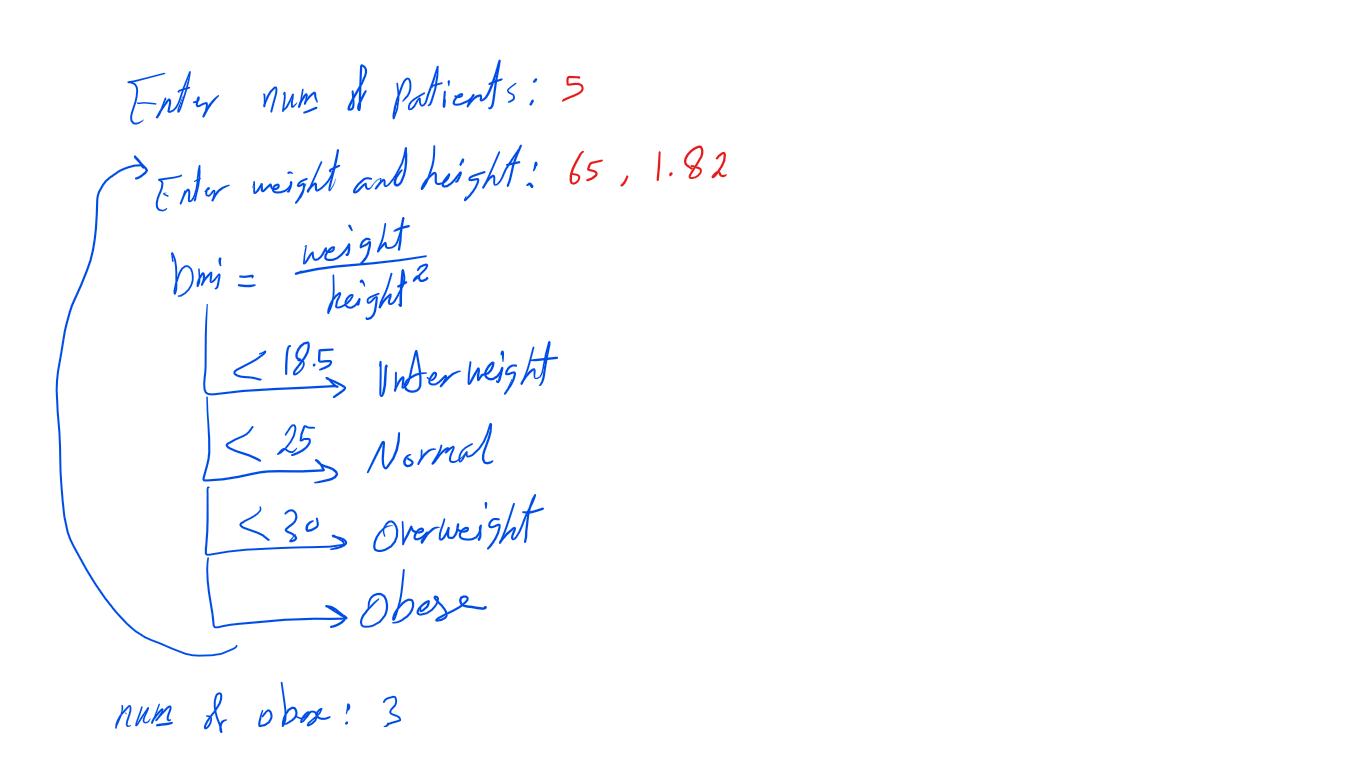 Enter num of patients: 5
Enter weight and height: 65, 1.82
bmi = weight
height²
< 18.5 Underweight
< 25 Normal
< 30 Overweight
Obese
num of obese: 3